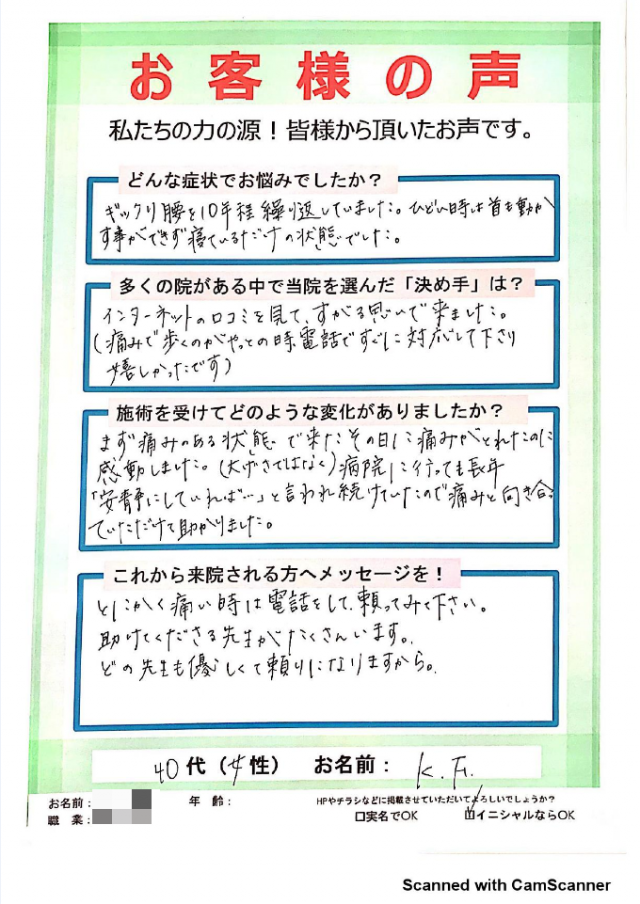 お客様の声
私たちの力の源！皆様から頂いたお声です。
どんな症状でお悩みでしたか？
ギックリ腰を10年程繰り返していました。ひどい時は首も動かす
事ができず寝ているだけの状態でした。
多くの院がある中で当院を選んだ「決め手」は？
インターネットの口コミを見て、すがる思いで来ました。
(痛みで歩くのがやっとの時、電話ですぐに対応して下さり
嬉しかったです)
施術を受けてどのような変化がありましたか？
まず痛みのある状態で来たその日に痛みがとれたのに
感動しました。(大げさではなく)病院に行っても長年
「安静にしていれば…」と言われ続けていたので痛みと向き合っ
ていただけて助かりました。
これから来院される方へメッセージを！
とにかく痛い時は電話をして、頼ってみて下さい。
助けてくださる先生がたくさんいます。
どの先生も優しくて頼りになりますから。
40代（女性） お名前： K.F.
お名前： 年 齢： HPやチラシなどに掲載させていただいてよろしいでしょうか？
職 業： □実名でOK ☑イニシャルならOK
Scanned with CamScanner